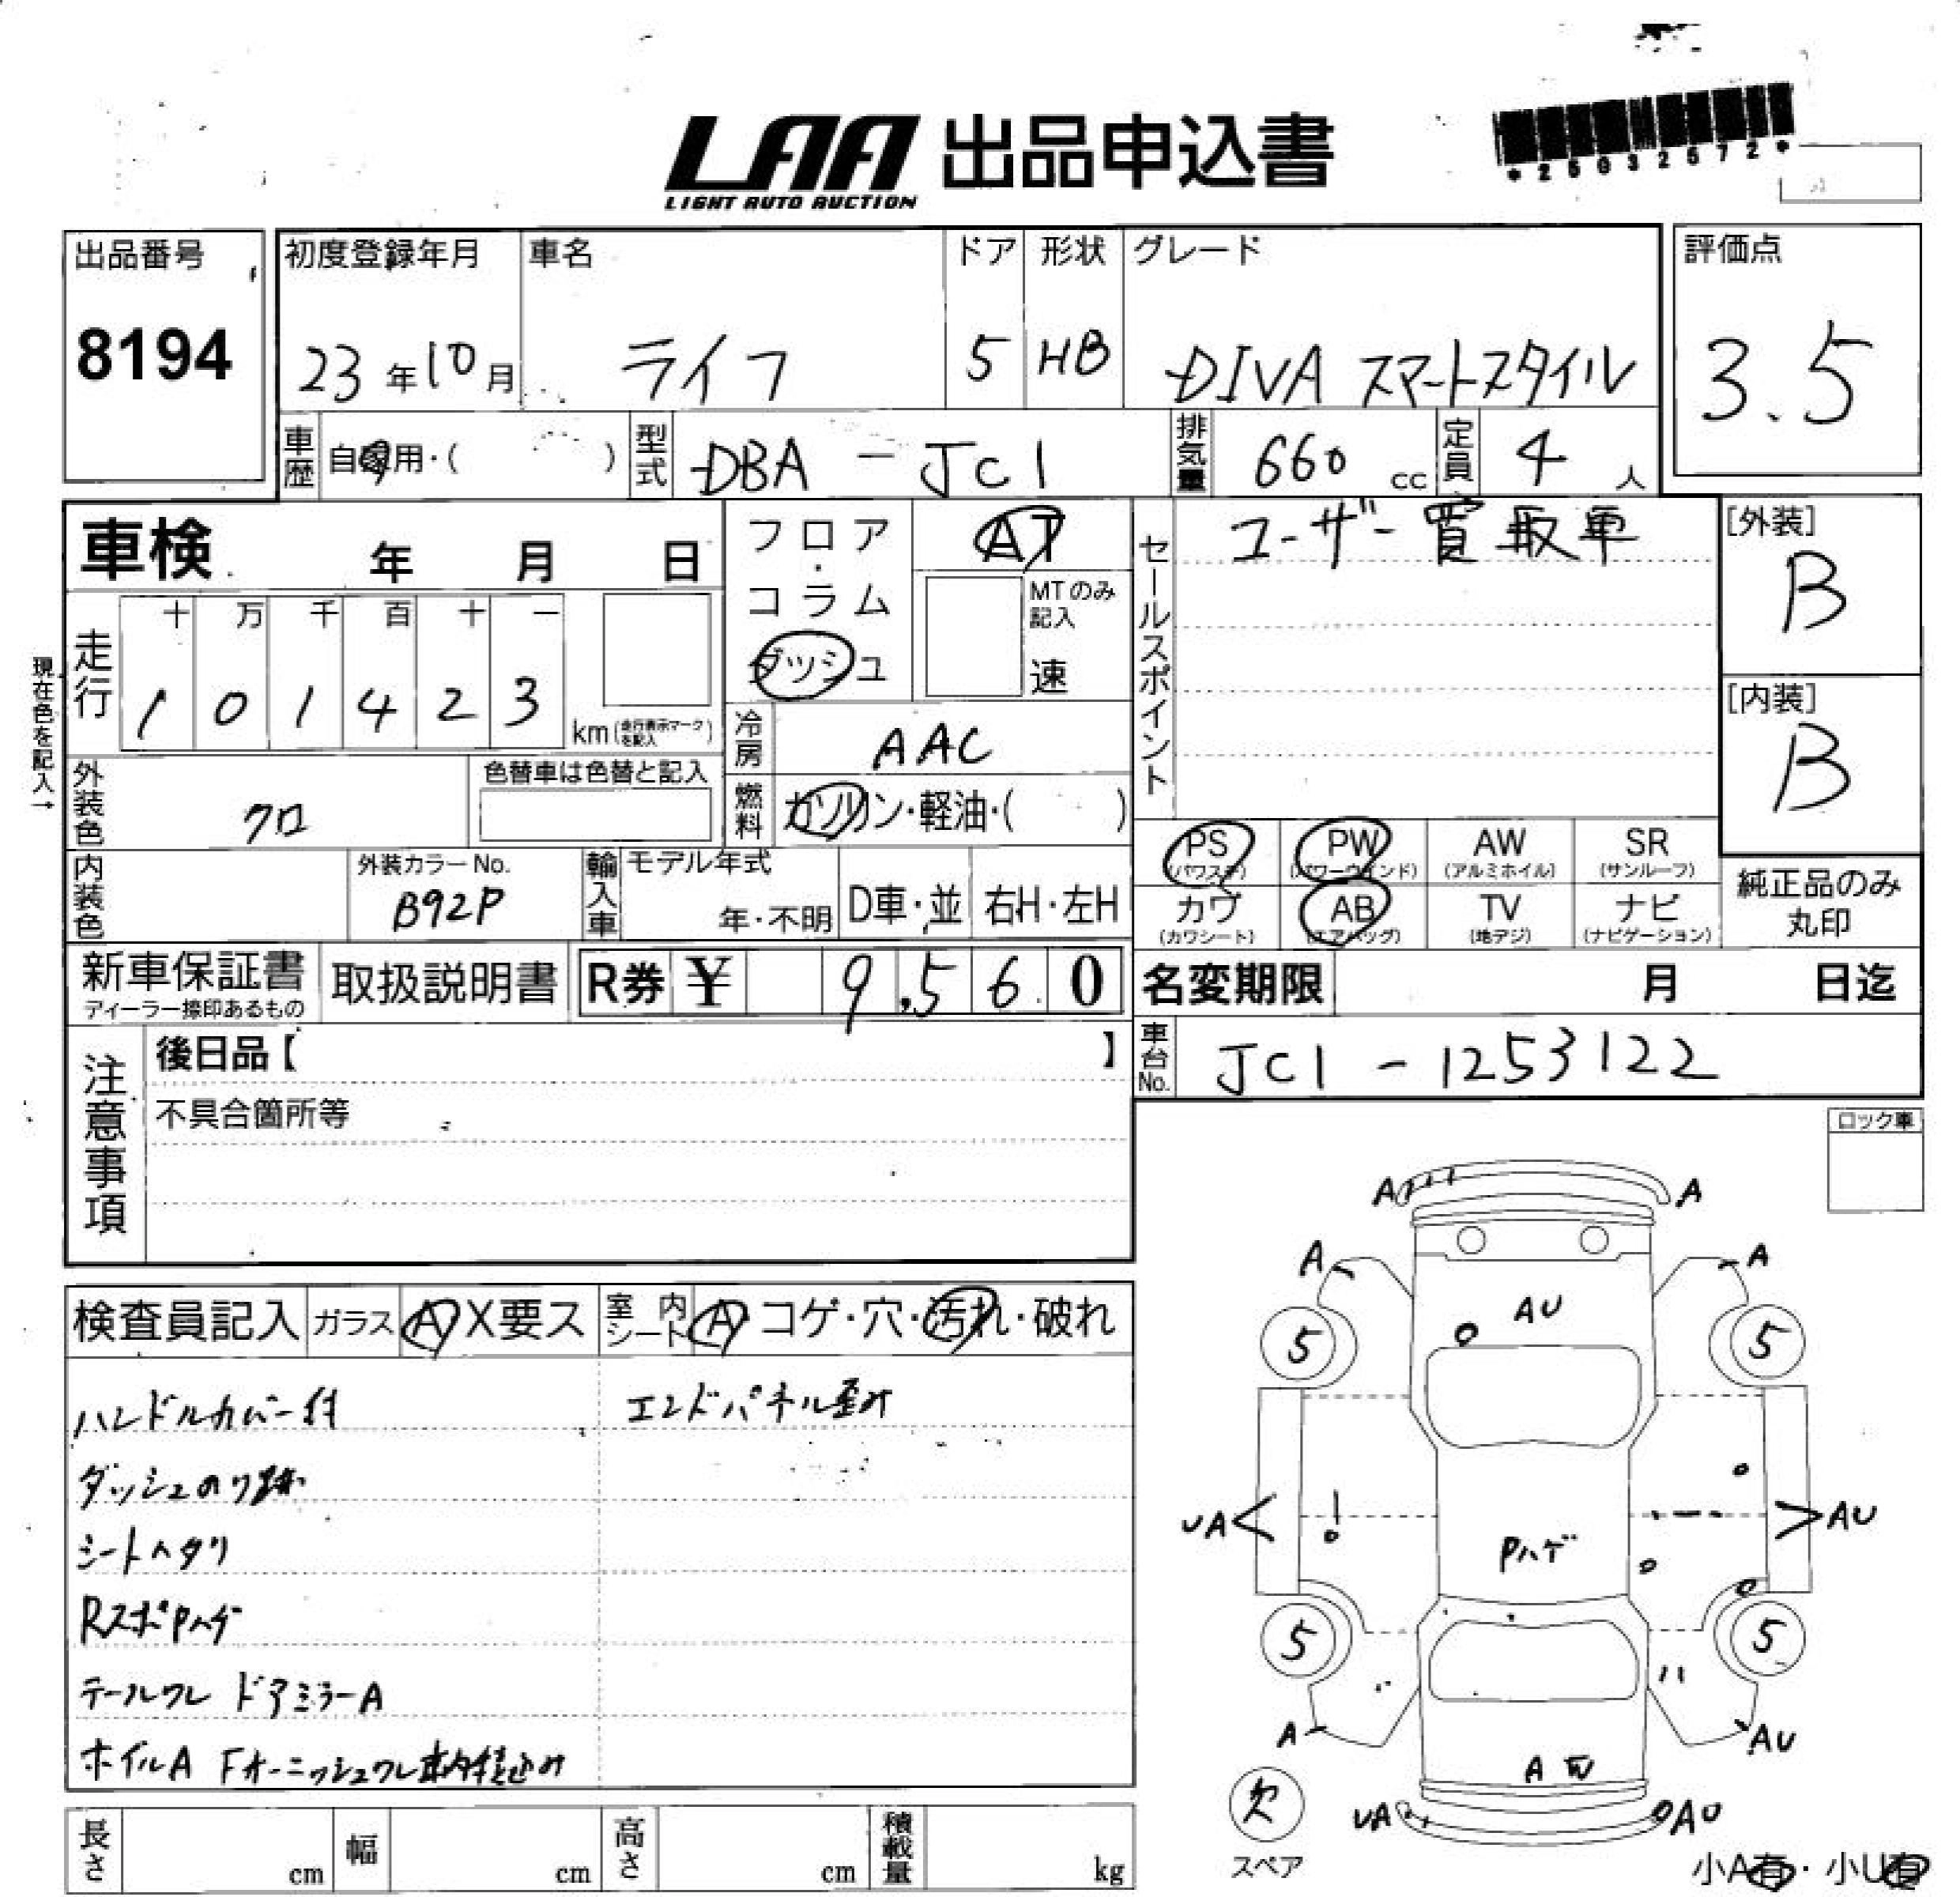 LAA 出品申込書
LIGHT AUTO AUCTION
*25032572*
出品番号
8194
初度登録年月
23年10月
車名
ライフ
ドア
5
形状
HB
グレード
DIVA スマートスタイル
評価点
3.5
車歴
自家用・( )
型式
DBA-JC1
排気量
660 cc
定員
4 人
車検 年 月 日
フロア・コラム
ダッシュ
AT
MTのみ記入
速
セールスポイント
ユーザー買取車
[外装]
B
[内装]
B
現在色を記入→
走行
十 万 千 百 十 一
1 0 1 4 2 3
km(走行表示マークを記入)
冷房
AAC
燃料
ガソリン・軽油・( )
外装色
クロ
色替車は色替と記入
内装色
外装カラーNo.
B92P
輸入車
モデル年式
年・不明
D車・並
右H・左H
PS
(パワステ)
PW
(パワーウインド)
AW
(アルミホイル)
SR
(サンルーフ)
カワ
(カワシート)
AB
(エアバッグ)
TV
(地デジ)
ナビ
(ナビゲーション)
純正品のみ
丸印
新車保証書
ディーラー捺印あるもの
取扱説明書
R券 ¥ 9,560
名変期限 月 日迄
注意事項
後日品【 】
不具合箇所等
車台No.
JC1-1253122
ロック車
検査員記入
ガラス
A X要ス
室内シート
A・コゲ・穴・汚れ・破れ
ハンドルカバー付
エンドパネル歪み
ダッシュのり跡
シートヘタリ
RスポPハゲ
テールワレ ドアミラーA
ホイルA Fガーニッシュワレ車内積込み
A A
A A
AU
5 5
UA AU
Pハゲ
5 5
A AU
A
UA AU
欠
スペア
小A有・小U有
長さ cm
幅 cm
高さ cm
積載量 kg